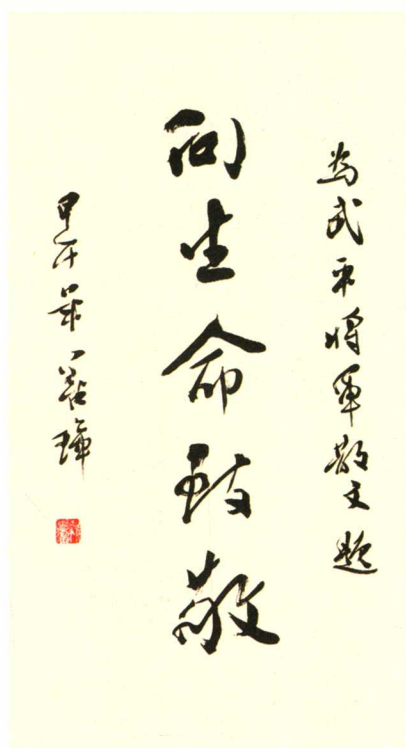 为武平将军散文题
向生命致敬
甲午